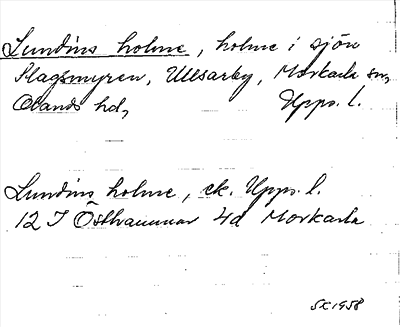 Lundins holme, holme i sjön
Slagsmyren, Ullsarby, Morkarla sn,
Olands hd, Upps. l.
Lundins holme, ek. Upps. l.
12 I Östhammar 4d Morkarla
SK 1958